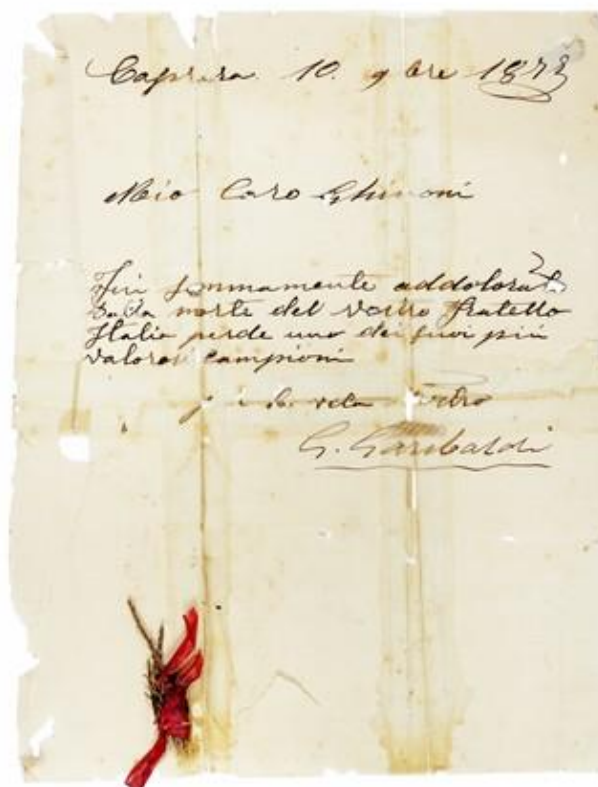 Caprera 10. 9bre 187
Mio Caro Ghinoni
Fui sommamente addolorato
dalla morte del vostro fratello
Italia perde uno dei suoi più
valorosi campioni
p la vita vostro
G. Garibaldi